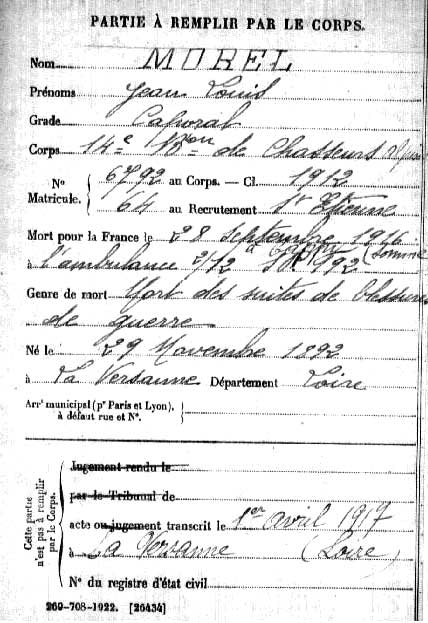 PARTIE À REMPLIR PAR LE CORPS.
Nom MOREL
Prénoms Jean Louis
Grade Caporal
Corps 14e Bon de Chasseurs
No Matricule. 6792 au Corps. — Cl. 1912
64 au Recrutement St Etienne
Mort pour la France le 28 Septembre 1916
à l'ambulance 2/12 (Somme)
Genre de mort Mort des suites de blessures
de guerre
Né le 29 Novembre 1892
à La Versanne Département Loire
Arrt municipal (pr Paris et Lyon),
à défaut rue et No.
Cette partie
n'est pas à remplir
par le Corps.
Jugement rendu le
par le Tribunal de
acte ou jugement transcrit le 1er avril 1917
à La Versanne (Loire)
No du registre d'état civil
269-708-1922. [26434]